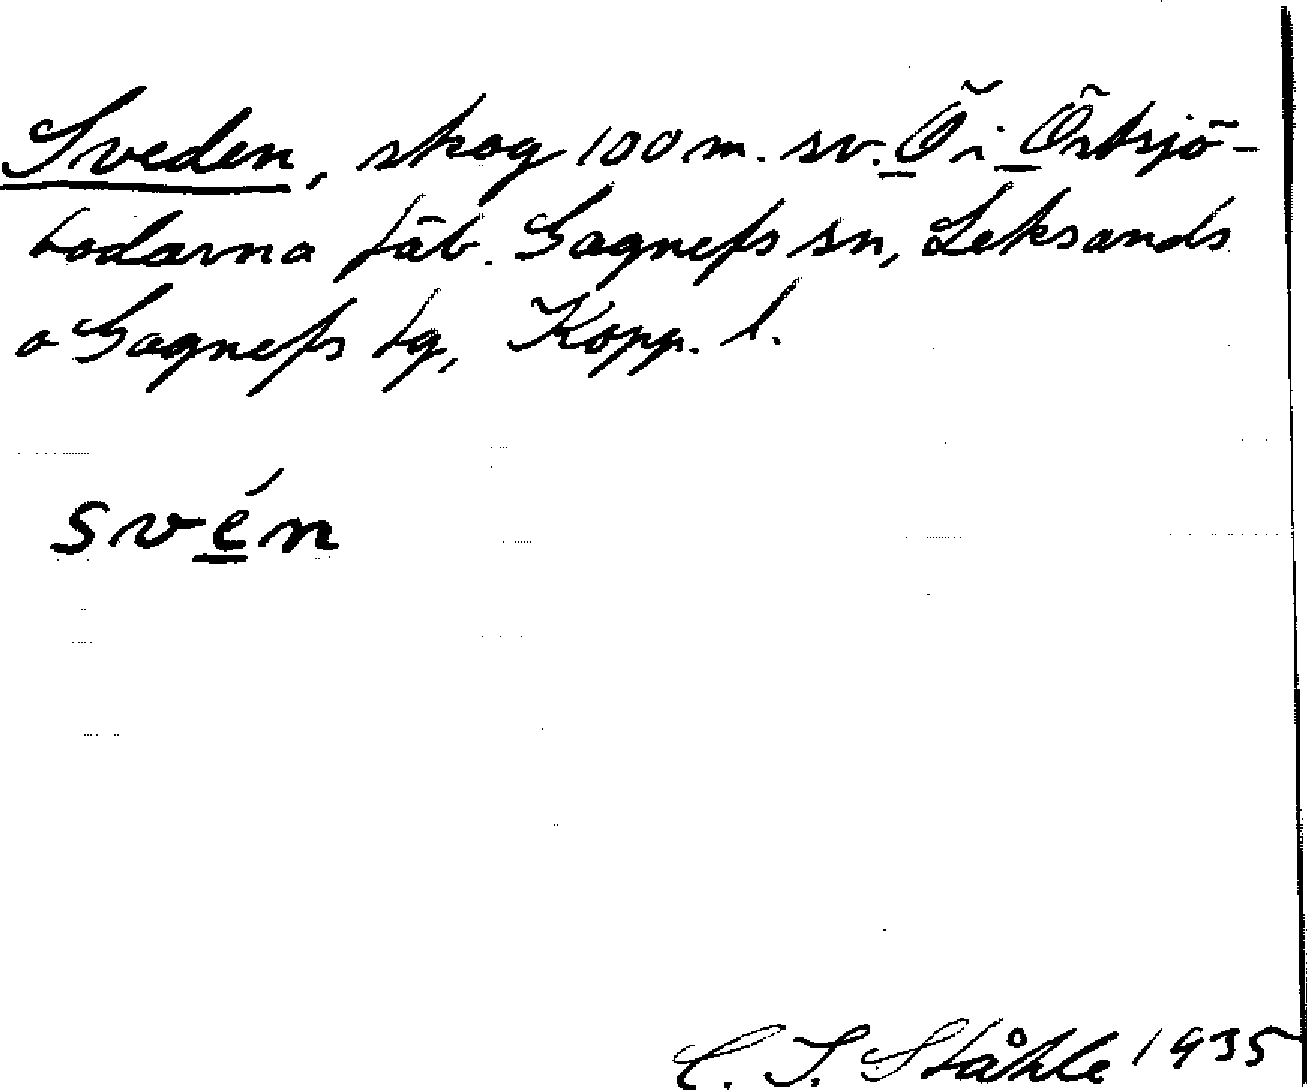 Sveden, skog 100 m. sv. Ö i Örtsjö-
bodarna fäb. Gagnefs sn, Leksands
o Gagnefs tg, Kopp. l.
svén
C. I. Ståhle 1935